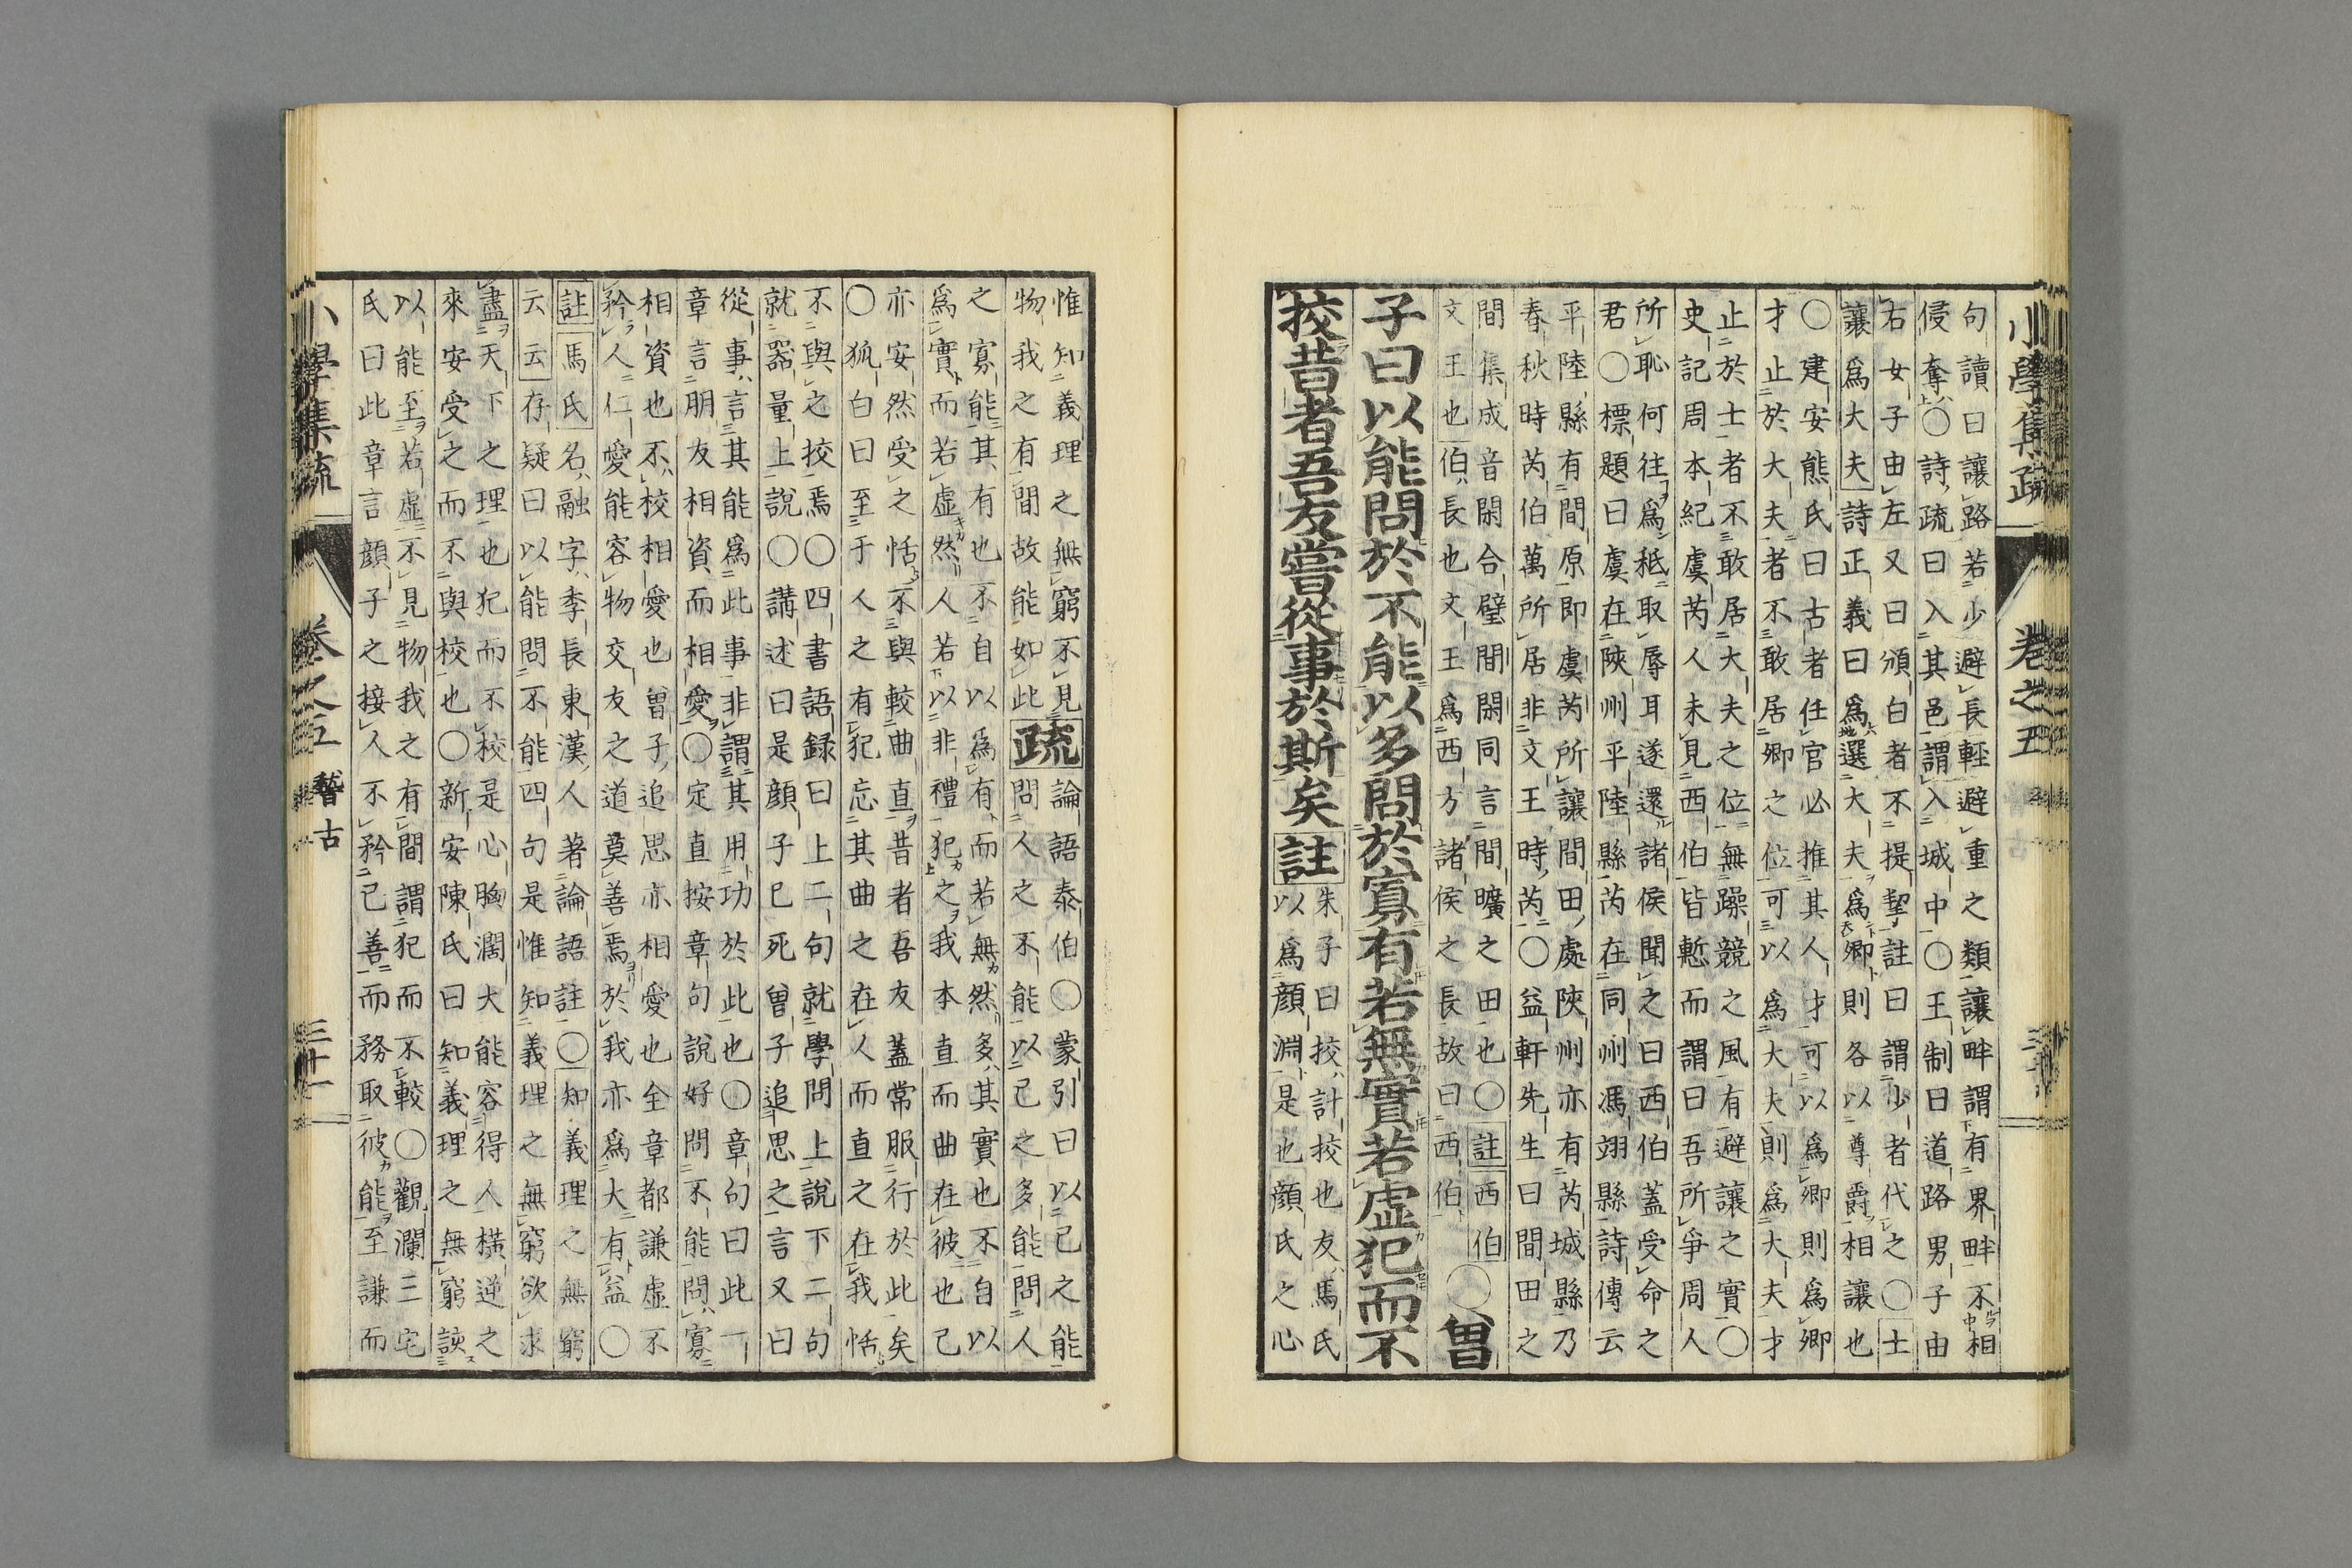 小學集疏 卷之五
句讀曰讓路若少避長輕避重之類讓畔謂有界畔不相
侵奪○詩疏曰入其邑謂入城中○王制曰道路男子由
右女子由左又曰頒白者不提挈註曰謂少者代之○士
讓爲大夫詩正義曰爲選大夫爲卿則各以尊爵相讓也
○建安熊氏曰古者任官必推其人才可以爲卿則爲卿
才止於大夫者不敢居卿之位可以爲大夫則爲大夫才
止於士者不敢居大夫之位無躁競之風有避讓之實○
史記周本紀虞芮人未見西伯皆慙而謂曰吾所爭周人
所恥何往爲秪取辱耳遂還諸侯聞之曰西伯蓋受命之
君○標題曰虞在陝州平陸縣芮在同州馮翊縣詩傳云
平陸縣有間原即虞芮所讓間田處陝州亦有芮城縣乃
春秋時芮伯萬所居非文王時芮○益軒先生曰間田之
間集成音閑合璧間閑同言間曠之田也○註西伯○曾
文王也伯長也文王爲西方諸侯之長故曰西伯
子曰以能問於不能以多問於寡有若無實若虛犯而不
挍昔者吾友嘗從事於斯矣註
朱子曰挍計挍也友馬氏
以爲顏淵是也顏氏之心
惟知義理之無窮不見
物我之有間故能如此
疏論語泰伯○蒙引曰以己之能
問人之不能以己之多能問人
之寡能其有也不自以爲有而若無然多其實也不自以
爲實而若虛然人若以非禮犯之我本直而曲在彼也己
亦安然受之恬不與較曲直昔者吾友蓋常服行於此矣
○狐白曰至于人之有犯忘其曲之在人而直之在我恬
不與之挍焉○四書語録曰上二句就學問上說下二句
就器量上說○講述曰是顏子已死曾子追思之言又曰
從事言其能爲此事非謂其用功於此也○章句曰此一
章言朋友相資而相愛○定直按章句說好問不能問寡
相資也不校相愛也曾子追思亦相愛也全章都謙虛不
矜人仁愛能容物交友之道莫善焉於我亦爲大有益○
註馬氏名融字季長東漢人著論語註○知義理之無窮
云云存疑曰以能問不能四句是惟知義理之無窮欲求
盡天下之理也犯而不校是心胸濶大能容得人橫逆之
來安受之而不與校也○新安陳氏曰知義理之無窮該
以能至若虛不見物我之有間謂犯而不較○觀瀾三宅
氏曰此章言顏子之接人不矜己善而務取彼能至謙而
小學集疏 卷之五 稽古 三十一